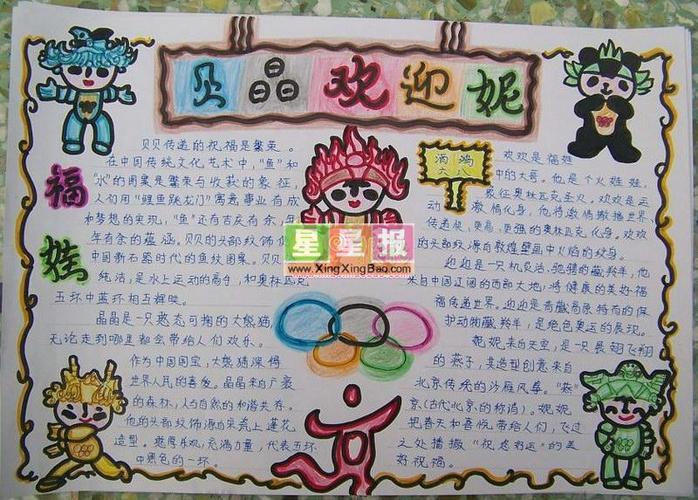 贝晶欢迎妮
福娃
贝贝传递的祝福是繁荣。
在中国传统文化艺术中，“鱼”和
“水”的图案是繁荣与收获的象征，
人们用“鲤鱼跳龙门”寓意事业有成
和梦想的实现，“鱼”还有吉庆有余、
年年有余的蕴涵。贝贝的头部纹饰
中国新石器时代的鱼纹图案。贝贝
纯洁，是水上运动的高手，和奥林匹克
五环中蓝环相互辉映。
晶晶是一只憨态可掬的大熊猫，
无论走到哪里都会带给人们欢乐。
作为中国国宝，大熊猫深得
世界人民的喜爱。晶晶来自广袤
的森林，人与自然的和谐共存。
他的头部纹饰源自宋瓷上莲花
造型。憨厚乐观，充满力量，代表五环
中黑色的一环。
星星报
www.XingXingBao.com
欢欢是福娃
中的大哥。他是个火娃娃，
象征奥林匹克圣火。欢欢是运
动激情化身，他将激情散播世界，
传递更快、更高、更强的奥林匹克化身。欢欢
的头部纹源自敦煌壁画中火焰的纹身。
迎迎是一只机灵活、驰骋的藏羚羊，他
来自中国辽阔的西部大地，将健康的美好福
福传递世界。迎迎是青藏高原特有的保
护动物藏羚羊，是绝色奥运的展现。
妮妮来自天空，是一只展翅飞翔
的燕子，其造型创意来自
北京传统的沙雁风筝。“燕”
京（古代北京的称谓）。妮妮
把春天和喜悦带给人们，飞过
之处播撒“祝您好运”的美
好祝福。